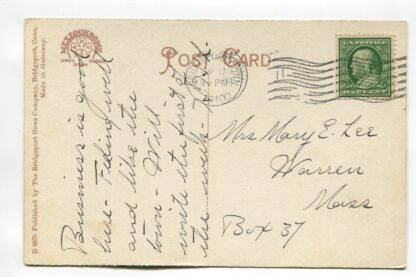 D 3975 Published by The Bridgeport News Company, Bridgeport, Conn.
Made in Germany.
POST CARD
U.S. POSTAGE
ONE CENT
Business is good
here - Feeling well
and like the
town - Will
write the first of
the week -
Mrs Mary E. Lee
Warren
Mass
Box 37